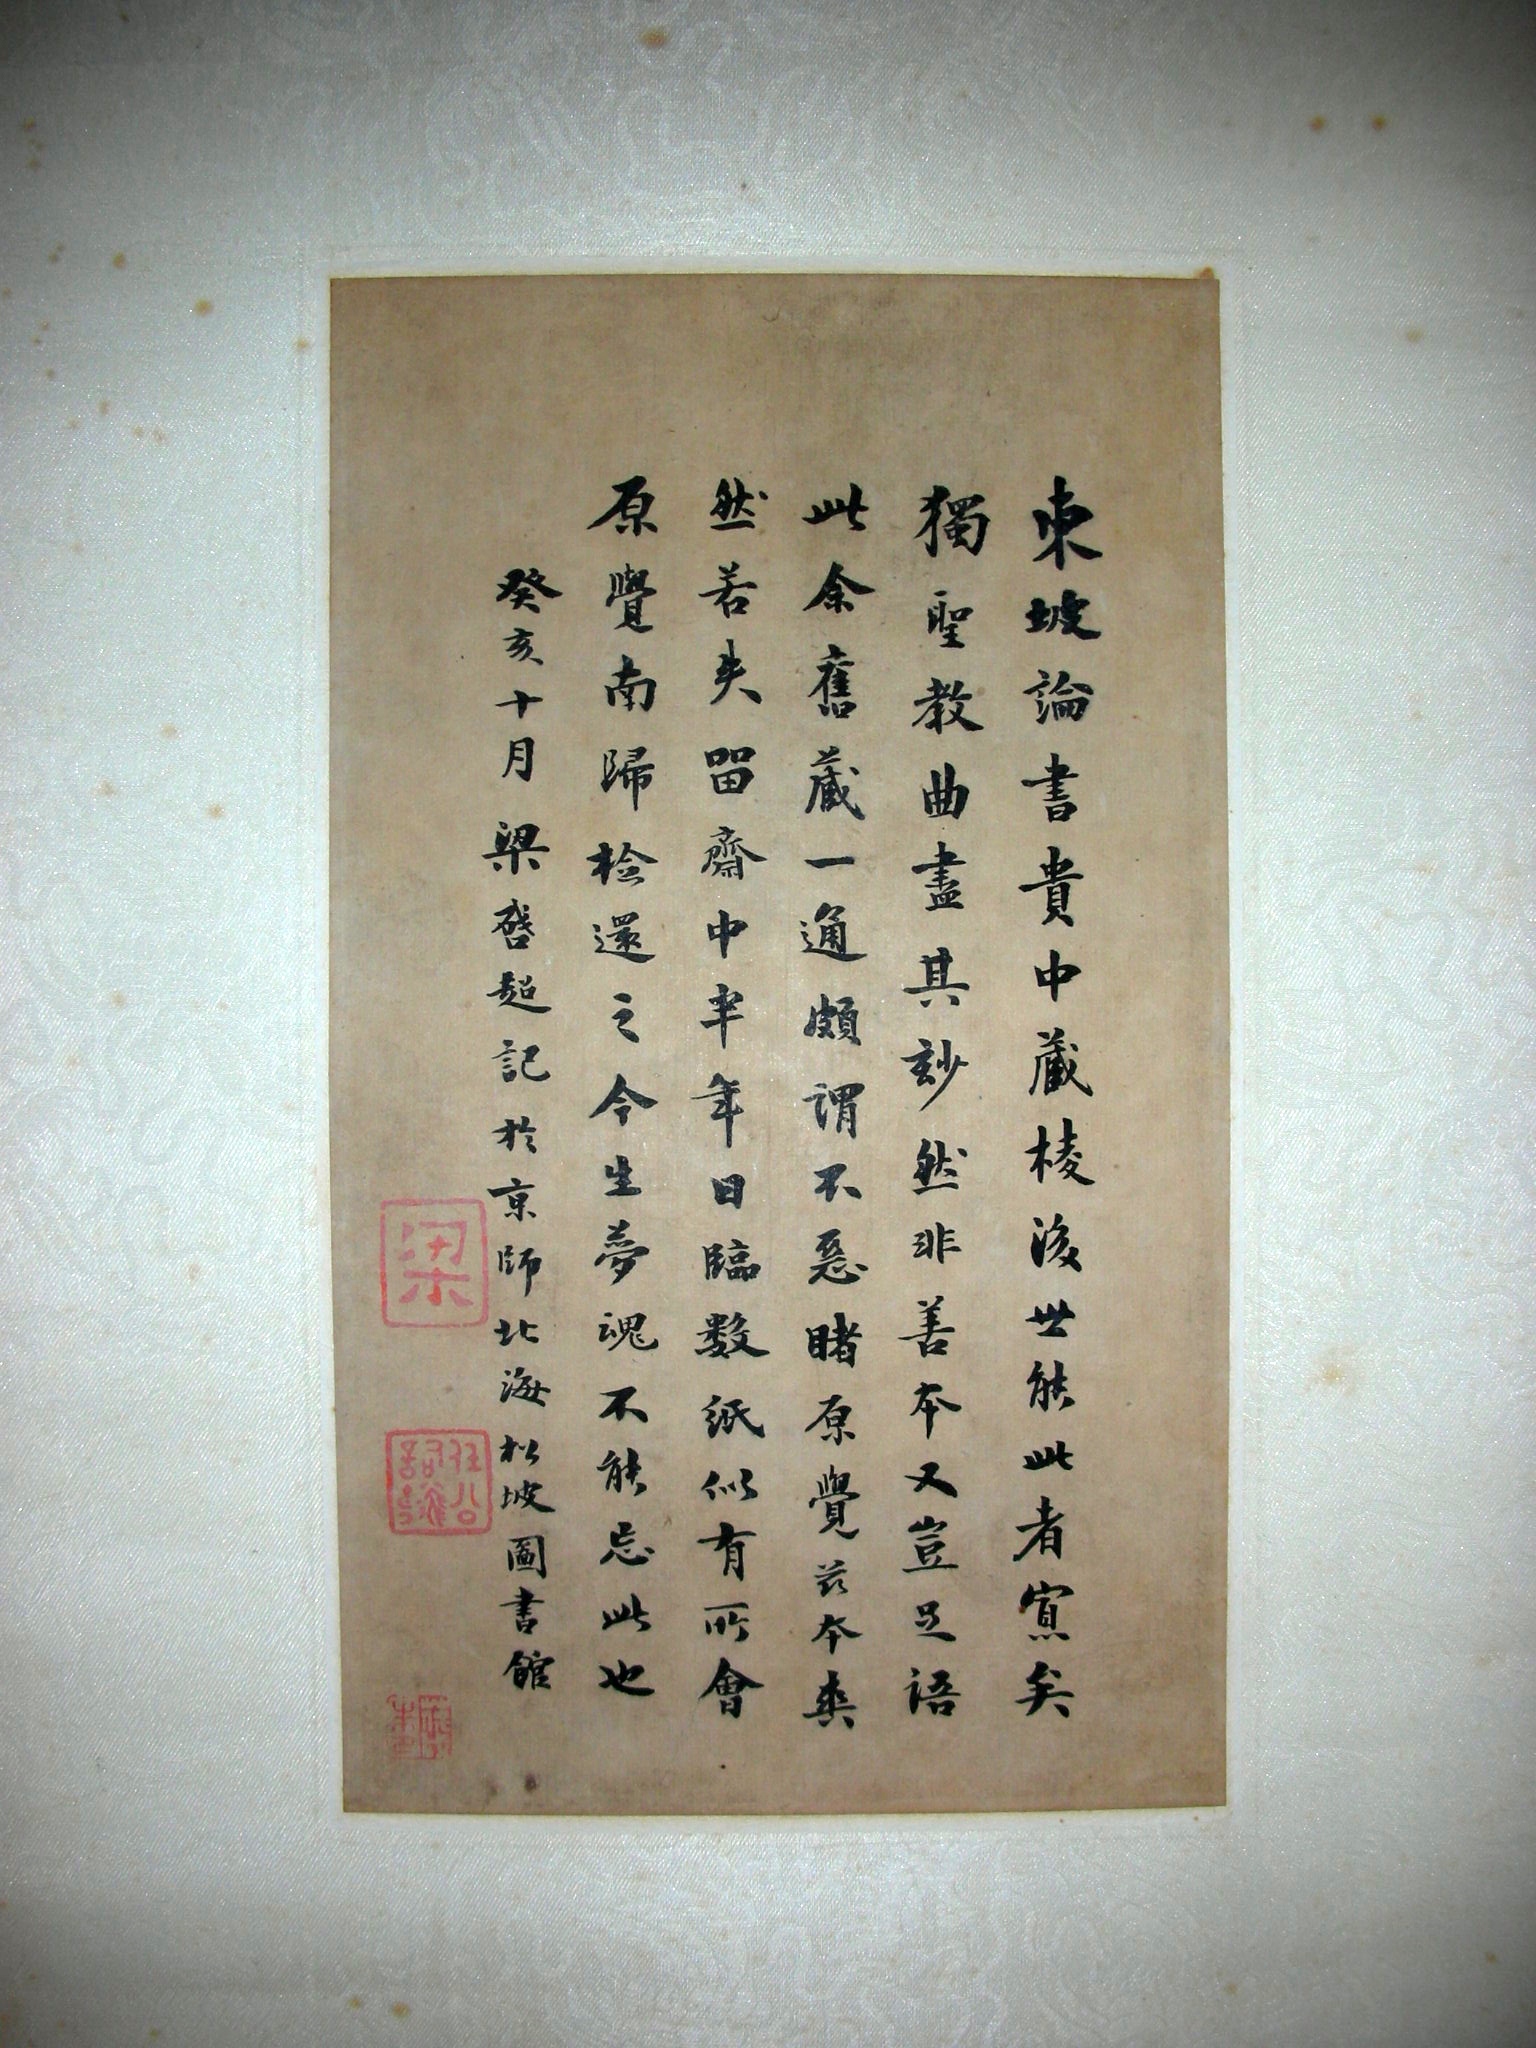 東坡論書貴中藏棱後世能此者寡矣
獨聖教曲盡其妙然非善本又豈足語
此余舊藏一通頗謂不惡睹原覺茲本爽
然若失留齋中半年日臨數紙似有所會
原覺南歸檢還之今生夢魂不能忘此也
癸亥十月梁啓超記於京師北海松坡圖書館
梁